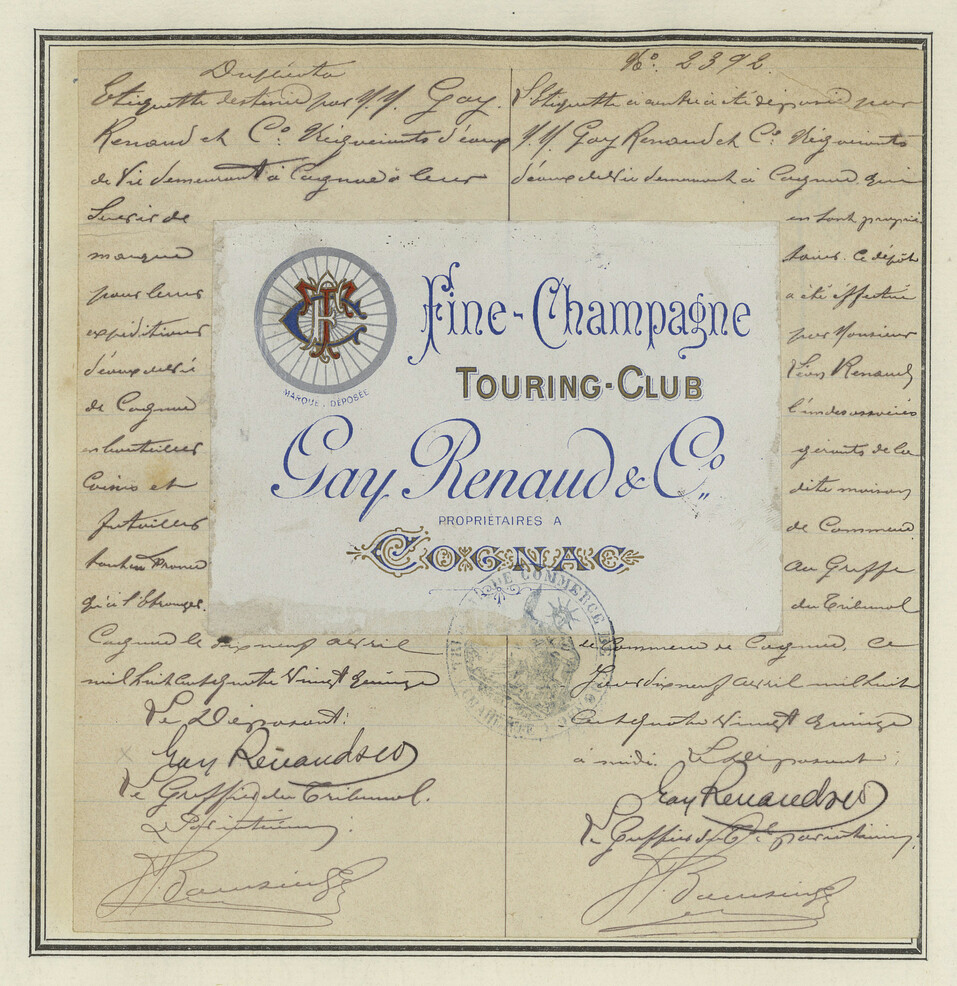 Duplicata
Etiquette destinée par M.M. Gay
Renaud et Co. Négociants d'eaux
de Vie demeurant à Cognac à leur
Servir de
marque
pour leurs
expéditions
d'eaux de vie
de Cognac
en bouteilles
Caisses et
futailles
tant en France
qu'à l'Etranger.
Cognac le dix neuf avril
mil huit cent quatre Vingt quinze
Le Déposant:
Gay Renaud & Co
Le Greffier du Tribunal.
No. 2392.
L'Etiquette ci contre a été déposée par
M.M. Gay Renaud et Co. Négociants
d'eaux de vie demeurant à Cognac qui
en sont proprié
taires. Ce dépôt
a été effectué
par Monsieur
Léon Renaud
l'un des associés
gérants de la
dite maison
de Commerce
au Greffe
du Tribunal
de Commerce de Cognac, ce
Jour dix neuf avril mil huit
Cent quatre Vingt quinze
à midi. Le Déposant:
Gay Renaud & Co
Le Greffier du Tal
MARQUE DÉPOSÉE
Fine-Champagne
TOURING-CLUB
Gay Renaud & Co.
PROPRIÉTAIRES A
COGNAC
DE COMMERCE DE